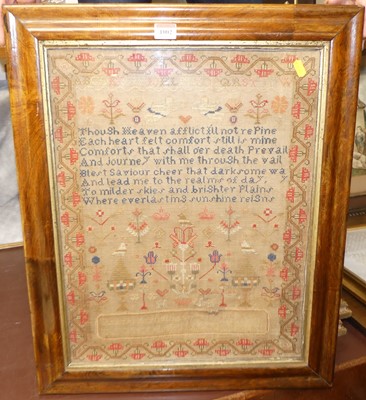 Though Heaven afflict ill not rePine
Each heart felt comfort still is mine
Comforts that shall oer death Prevail
And journey with me through the vail
Blest Saviour cheer that darksome wa
y
And lead me to the realms of day.
To milder skies and brighter Plains
Where everlasting sunshine reigns